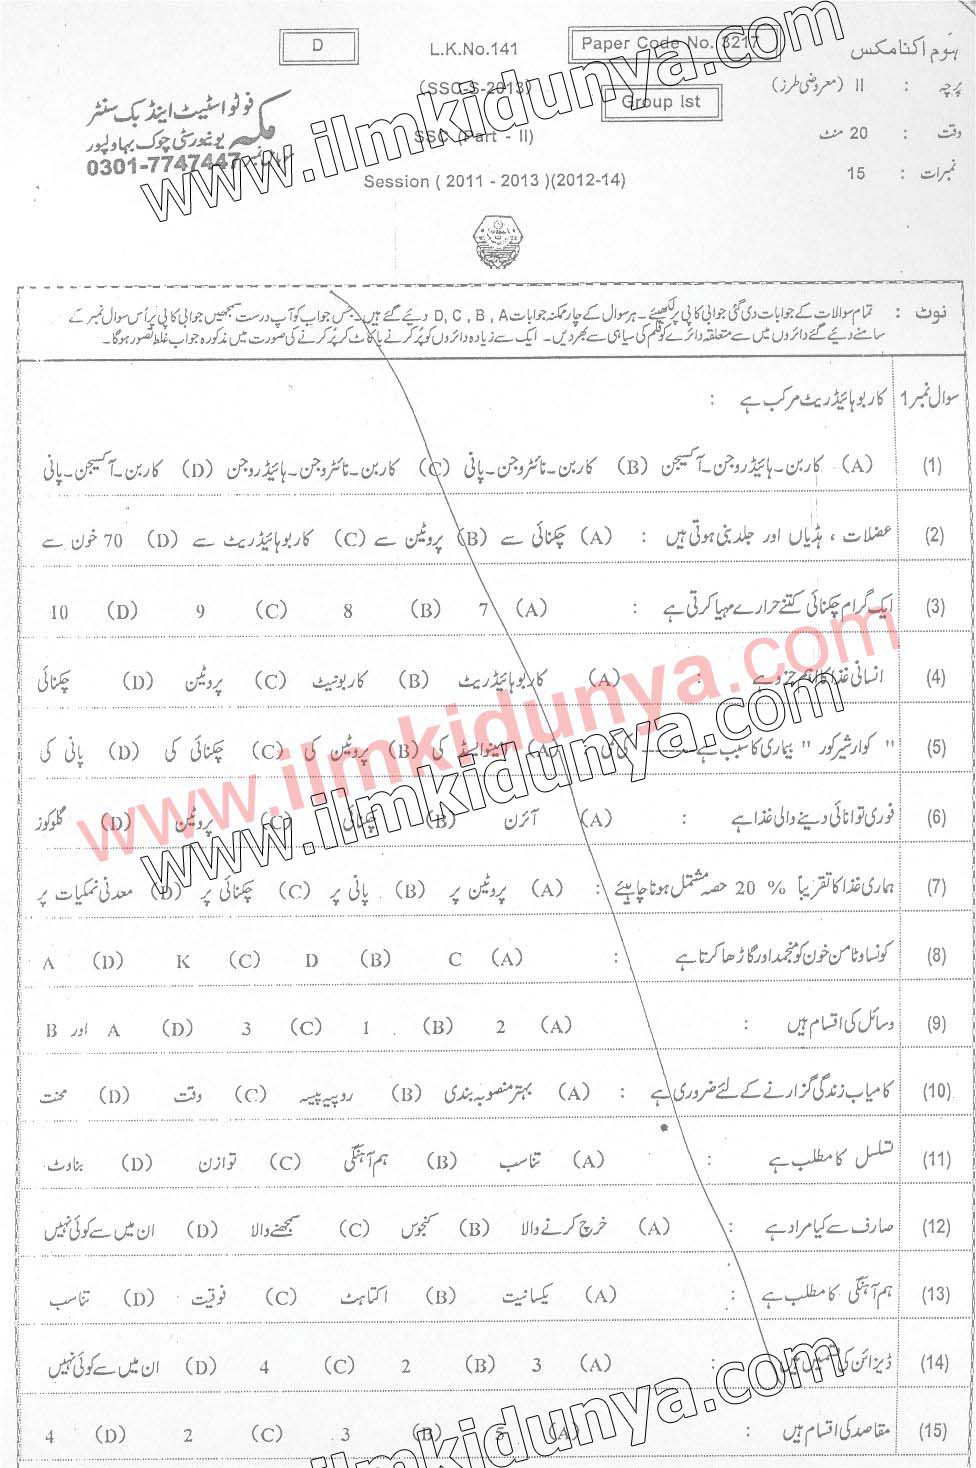 D
L.K.No.141
Paper Code No. 3217
ہوم اکنامکس
(SSC-S-2013)
Group Ist
پرچہ : II (معروضی طرز)
فوٹو اسٹیٹ اینڈ بک سنٹر
مکہ
یونیورسٹی چوک بہاولپور
0301-7747447
SSC (Part - II)
وقت : 20 منٹ
Session ( 2011 - 2013 )(2012-14)
نمبرات : 15
www.ilmkidunya.com
نوٹ : تمام سوالات کے جوابات دی گئی جوابی کاپی پر لکھیئے۔ ہر سوال کے چار ممکنہ جوابات D, C, B, A دیئے گئے ہیں۔ جس جواب کو آپ درست سمجھیں جوابی کاپی پر اُس سوال نمبر کے
سامنے دیئے گئے دائروں میں سے متعلقہ دائرے کو قلم کی سیاہی سے بھر دیں۔ ایک سے زیادہ دائروں کو پُر کرنے یا کاٹ کر پُر کرنے کی صورت میں مذکورہ جواب غلط تصور ہوگا۔
سوال نمبر 1 کاربوہائیڈریٹ مرکب ہے :
(1) (A) کاربن۔ہائیڈروجن۔آکسیجن (B) کاربن۔نائٹروجن۔پانی (C) کاربن۔نائٹروجن۔ہائیڈروجن (D) کاربن۔آکسیجن۔پانی
(2) عضلات ، ہڈیاں اور جلد بنی ہوتی ہیں : (A) چکنائی سے (B) پروٹین سے (C) کاربوہائیڈریٹ سے (D) 70 خون سے
(3) ایک گرام چکنائی کتنے حرارے مہیا کرتی ہے : (A) 7 (B) 8 (C) 9 (D) 10
(4) انسانی غذا کا اہم جزو ہے : (A) کاربوہائیڈریٹ (B) کاربونیٹ (C) پروٹین (D) چکنائی
(5) " کوارشیرکور " بیماری کا سبب ہے ------ کی کمی : (A) امینو ایسڈ کی (B) پروٹین کی (C) چکنائی کی (D) پانی کی
(6) فوری توانائی دینے والی غذا ہے : (A) آئرن (B) چکنائی (C) پروٹین (D) گلوکوز
(7) ہماری غذا کا تقریباً 20 % حصہ مشتمل ہونا چاہیئے : (A) پروٹین پر (B) پانی پر (C) چکنائی پر (D) معدنی نمکیات پر
(8) کونسا وٹامن خون کو منجمد اور گاڑھا کرتا ہے : (A) C (B) D (C) K (D) A
(9) وسائل کی اقسام ہیں : (A) 2 (B) 1 (C) 3 (D) A اور B
(10) کامیاب زندگی گزارنے کے لئے ضروری ہے : (A) بہتر منصوبہ بندی (B) روپیہ پیسہ (C) وقت (D) محنت
(11) تسلسل کا مطلب ہے : (A) تناسب (B) ہم آہنگی (C) توازن (D) بناوٹ
(12) صارف سے کیا مراد ہے : (A) خرچ کرنے والا (B) کنجوس (C) سمجھنے والا (D) ان میں سے کوئی نہیں
(13) ہم آہنگی کا مطلب ہے : (A) یکسانیت (B) اکتاہٹ (C) فوقیت (D) تناسب
(14) ڈیزائن کی قسمیں ہیں : (A) 3 (B) 2 (C) 4 (D) ان میں سے کوئی نہیں
(15) مقاصد کی اقسام ہیں : (A) 5 (B) 3 (C) 2 (D) 4
www.ilmkidunya.com
www.ilmkidunya.com
ilmkidunya.com